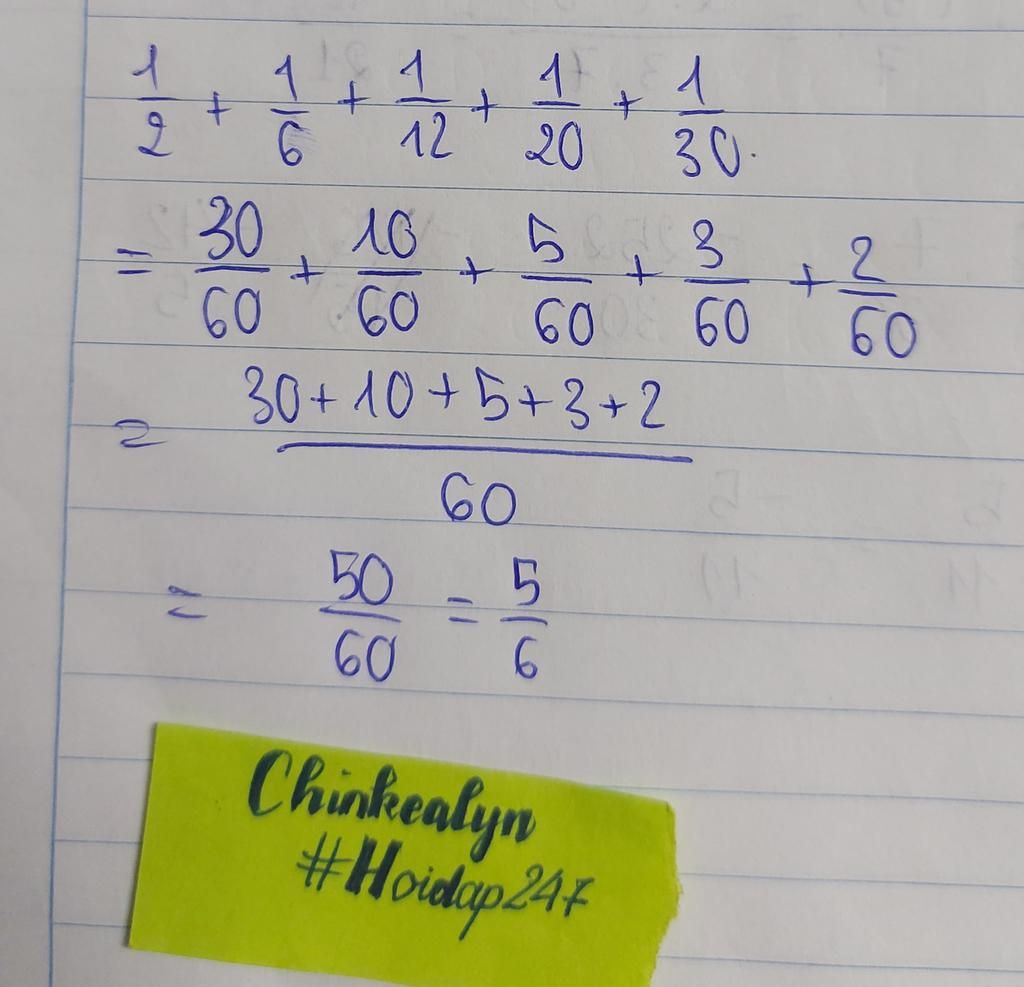 1/2 + 1/6 + 1/12 + 1/20 + 1/30.
= 30/60 + 10/60 + 5/60 + 3/60 + 2/60
= (30+10+5+3+2)/60
= 50/60 = 5/6
Chinkealyn
#Hoidap247